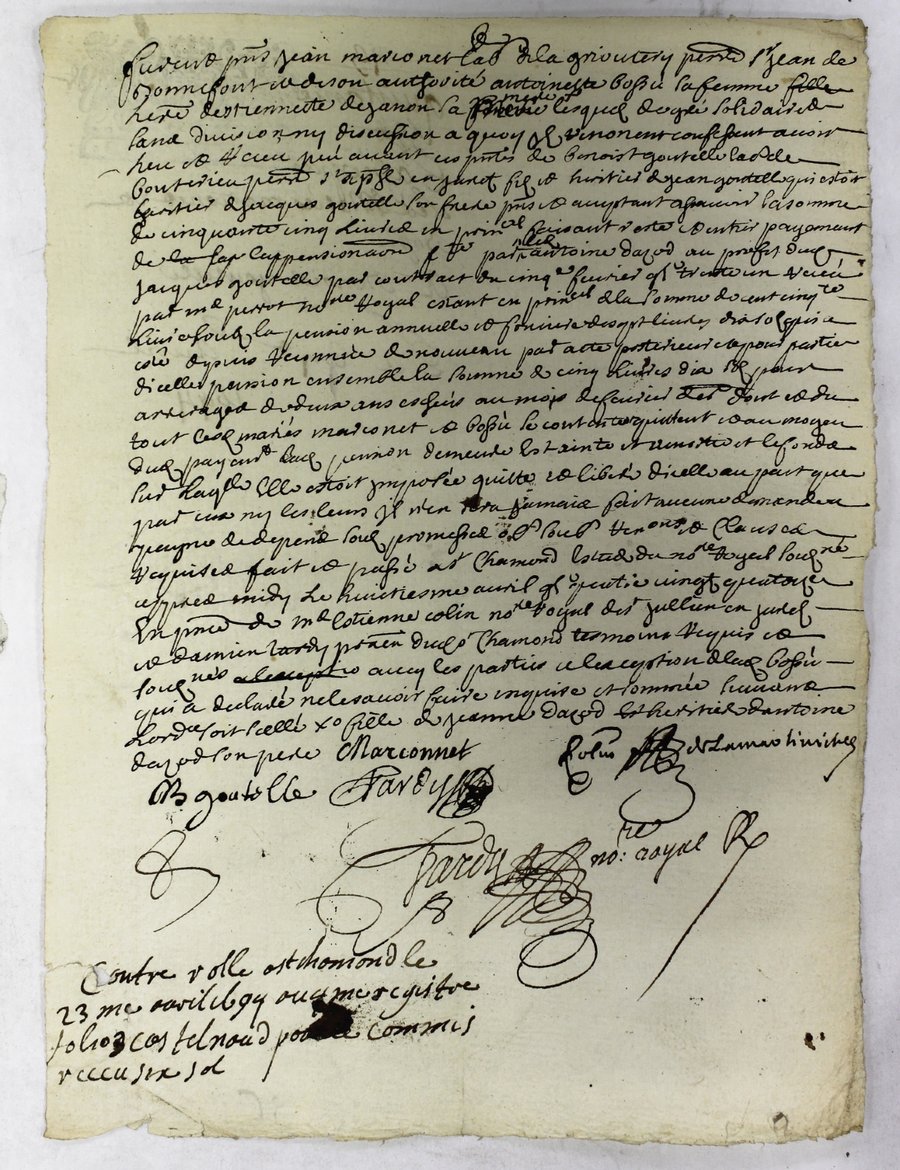 furent pnts Jean marconet lab de la grioutery perre st Jean de
bonnefont et de son authorité antoinette bossü sa femme fille
here destiennette dejanon sa lesquels de gré solidairet
sans division ny discussion a quoy ils renoncent confessent avoir
heu et receu peu avant ces pntes de benoist goutelle lab de
perre en Jarest fils et heritier de Jean goutelle qui estoit
heritier de Jacques goutelle son frere pnt et acceptant assavoir la somme
de cinquante cinq livres en princal faisant reste et entier payement
de la par antoine dazod au proffit dud
Jacques goutelle par contract du cinqe fevrier gl trente un receu
par me perrot nore Royal estant en princal de la somme de cent cinqte
livres soubz la pension annuelle et fonciere de sept livres dix solz
despuis reconnüe de nouveau par acte posterieur et pour partie
dicelle pension ensemble la somme de cinq livres dix solz pour
arrerages de deux ans escheus au mois de fevrier der dont et du
tout lesd mariés marconet et bossü se contentent quittent et au moyen
dud payemt lad pension demeure estainte et amortie et le fonds
sur laqlle Elle estoit Imposée quitte et libre dicelle au point que
par eux ny les leurs Il n'en sera Jamais fait aucune demande a
payne de depens soubz promesses oblig soubz renons et clauses
requises fait et passé a st Chamond estude du nore royal soubsné
apres midy Le huictiesme avril gl six centz quatre vingt quatorze
En pnce de me Estienne colin nore Royal de st Jullien en Jarest
et damien tardy praen dud st Chamond tesmoins requis et
soubsnés avecq les parties a lexception de lad bossü
qui a declaré ne le savoir faire enquise et sommée
soit scellé fille de Jeanne dazod et heritiere dantoine
dazod son pere Marconnet Colin de Lamartiniere
B goutelle Tardy
Tardy nore royal R
Contre rolle a st chomond le
23 me avril 1694 au 4 me registre
folio 3 castelnaud pour le commis
receu six sol